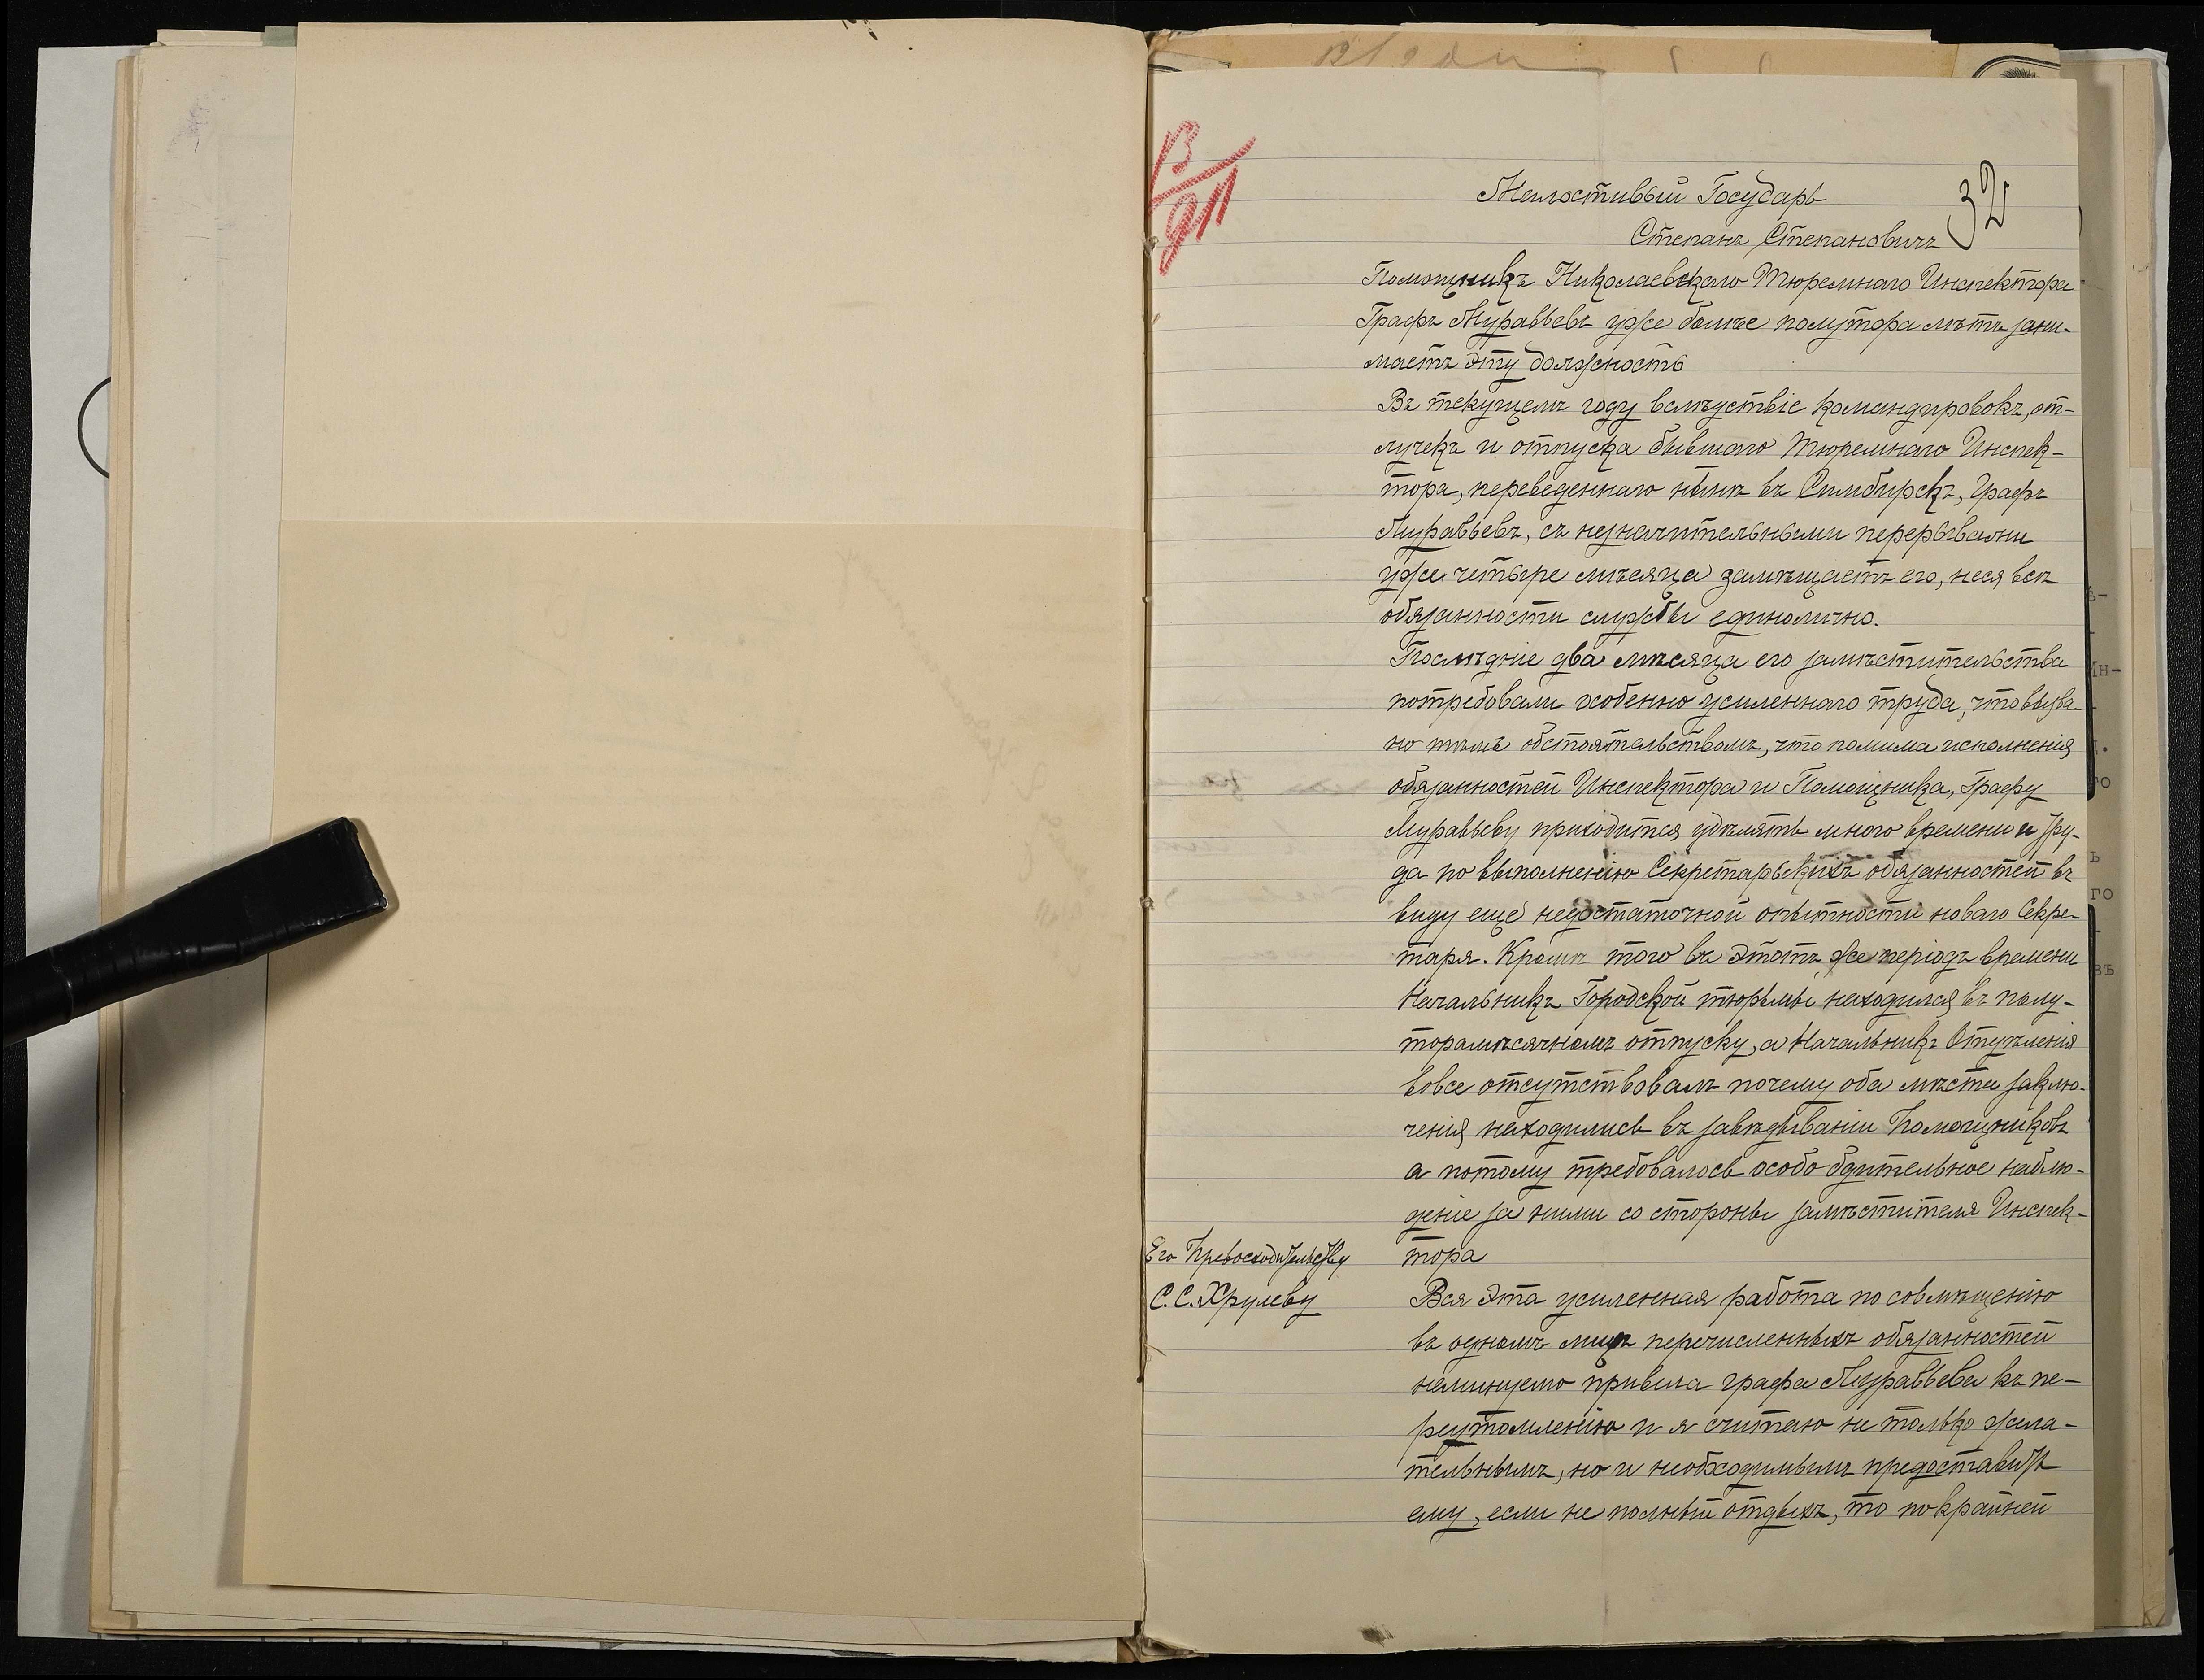 13/911
32
Милостивый Государь
Степанъ Степановичъ
Помощникъ Николаевскаго Тюремнаго Инспектора
Графъ Муравьевъ уже болѣе полутора лѣтъ зани-
маетъ эту должность
Въ текущемъ году вслѣдствіе командировокъ, от-
лучекъ и отпуска бывшаго Тюремнаго Инспек-
тора, переведеннаго нынѣ въ Симбирскъ, Графъ
Муравьевъ, съ незначительными перерывами
уже четыре мѣсяца замѣщаетъ его, неся всѣ
обязанности службы единолично.
Послѣдніе два мѣсяца его замѣстительства
потребовали особенно усиленнаго труда, что вызва-
но тѣмъ обстоятельствомъ, что помима исполненія
обязанностей Инспектора и Помощника, Графу
Муравьеву приходится удѣлять много времени и тру-
да по выполненію Секретарскихъ обязанностей въ
виду еще недостаточной опытности новаго Секре-
таря. Кромѣ того въ этотъ же періодъ времени
Начальникъ Городской тюрьмы находился въ полу-
торамѣсячномъ отпуску, а Начальникъ Отдѣленія
вовсе отсутствовалъ почему оба мѣста заклю-
ченія находились въ завѣдываніи Помощниковъ
а потому требовалось особо бдительное наблю-
деніе за ними со стороны замѣстителя Инспек-
тора
Вся эта усиленная работа по совмѣщенію
въ одномъ лицѣ перечисленныхъ обязанностей
неминуемо привела графа Муравьева къ пе-
реутомленію и я считаю не только жела-
тельнымъ, но и необходимымъ предоставить
ему, если не полный отдыхъ, то по крайней
Его Превосходительству
С. С. Хрулеву